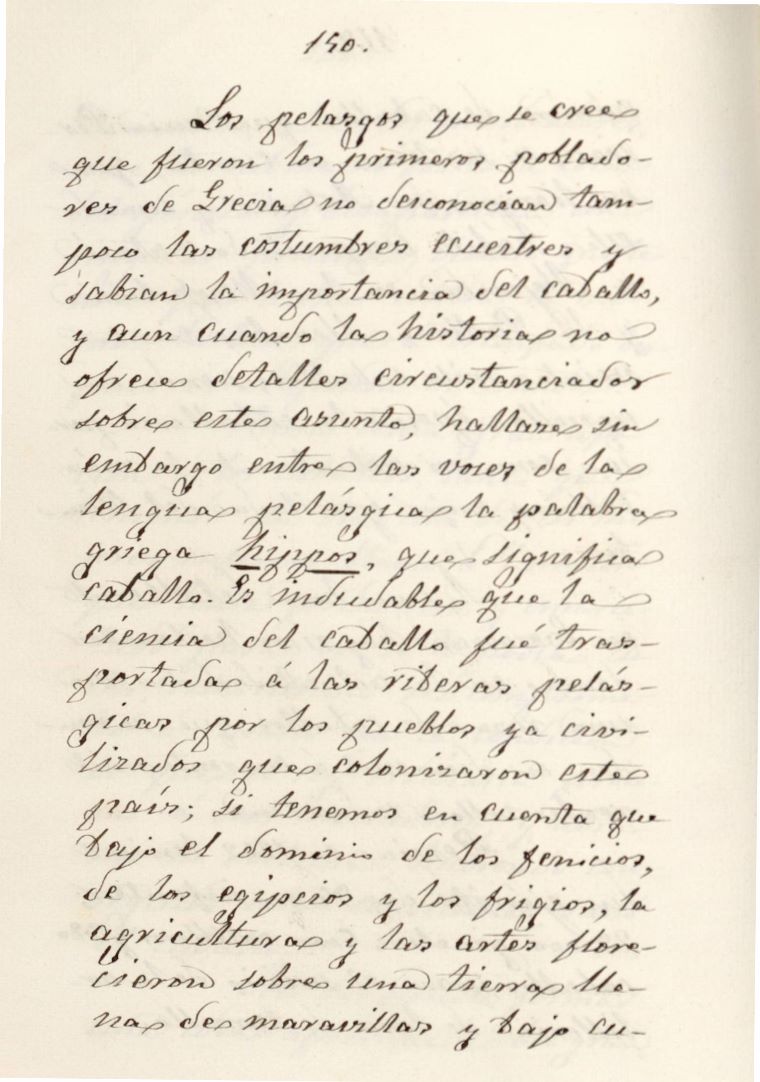 150.
Los pelasgos que se cree
que fueron los primeros poblado-
res de Grecia no desconocian tam-
poco las costumbres ecuestres y
sabian la importancia del caballo,
y aun cuando la historia no
ofrece detalles circustanciados
sobre este asunto, hallase sin
embargo entre las voces de la
lengua pelásgica la palabra
griega hippos, que significa
caballo. Es indudable que la
ciencia del caballo fué tras-
portada á las riberas pelás-
gicas por los pueblos ya civi-
lizados que colonizaron este
país; si tenemos en cuenta que
bajo el dominio de los fenicios,
de los egipcios y los frigios, la
agricultura y las artes flore-
cieron sobre una tierra lle-
na de maravillas y bajo cu-